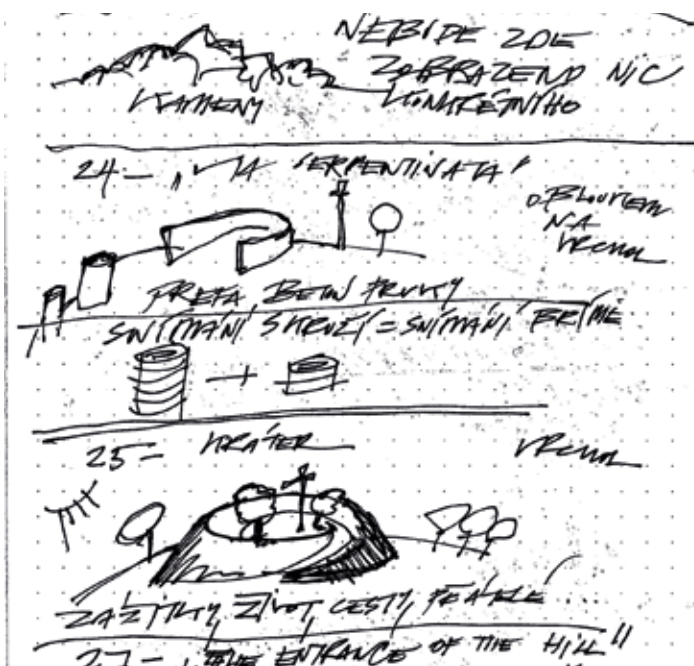 NEBUDE ZDE
ZOBRAZENO NIC
KAMENY KONKRÉTNÍHO
24 – "VIA SERPENTINATA"
OBLOUKEM
NA
VRCHOL
PREFA BETON PRVKY
SNÍMÁNÍ SKRUŽÍ = SNÍMÁNÍ BŘÍMĚ
25 – KRÁTER VRCHOL
ZÁŽITKY, ŽIVOT, CESTY,
27 – "THE ENTRANCE OF THE HILL"